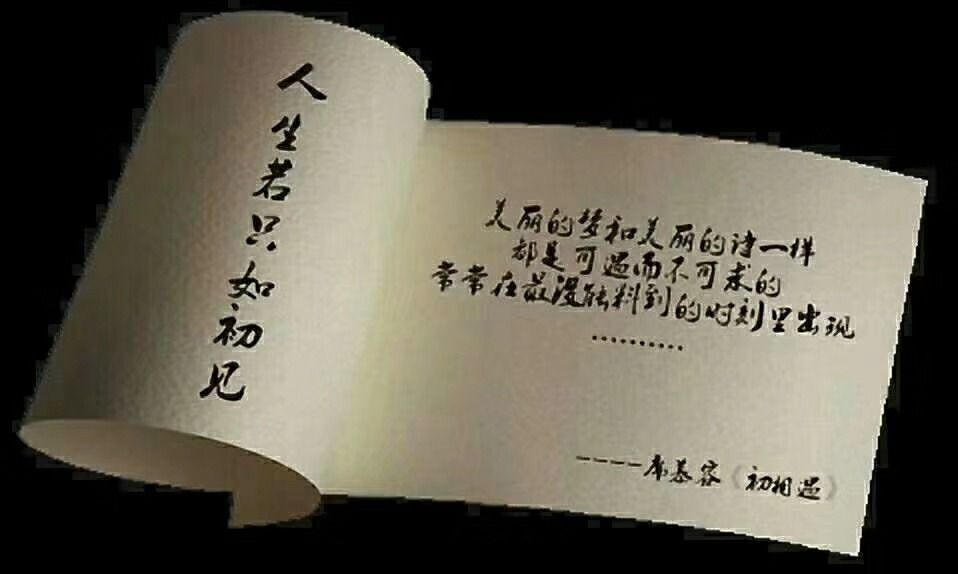 人生若只如初见
美丽的梦和美丽的诗一样
都是可遇而不可求的
常常在最没能料到的时刻里出现
··········
----席慕容《初相遇》